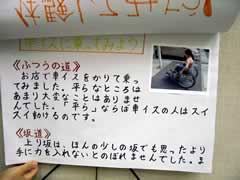 車イスに乗ってみよう
《ふつうの道》
お店で車イスをかりて乗っ
てみました。平らなところは
あまり大変なことはありま
せんでした。「平ら」ならば車イスの人はスイ
スイ動けるのです。
《坂道》
上り坂は、ほんの少しの坂でも思ったより
手に力を入れないとのぼれませんでした。ま